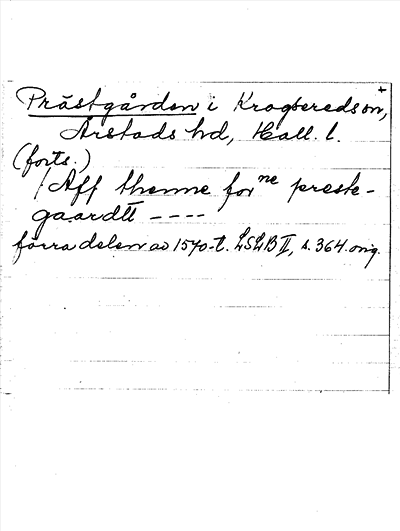 +
Prästgården i Krogsereds sn,
Årstads hd, Hall. l.
(forts.)
/Aff thenne forne prest-
gaardtt ----
förra delen av 1570-t. LSLB II, s. 364. orig.